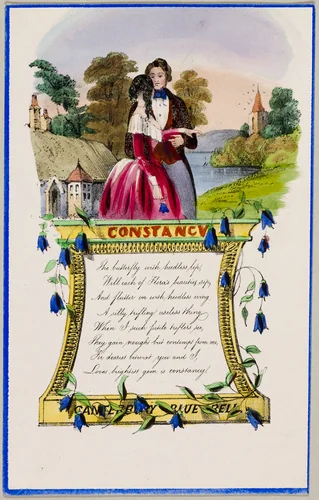 CONSTANCY
The butterfly with heedless lip,
Will each of Flora's beauties sip,
And flutter on with heedless wing
A silly trifling useless thing,
When I such fickle triflers see,
They gain nought but contempt from me,
For dearest between you and I,
Loves brightest gem is constancy!
CANTERBURY BLUE BELL